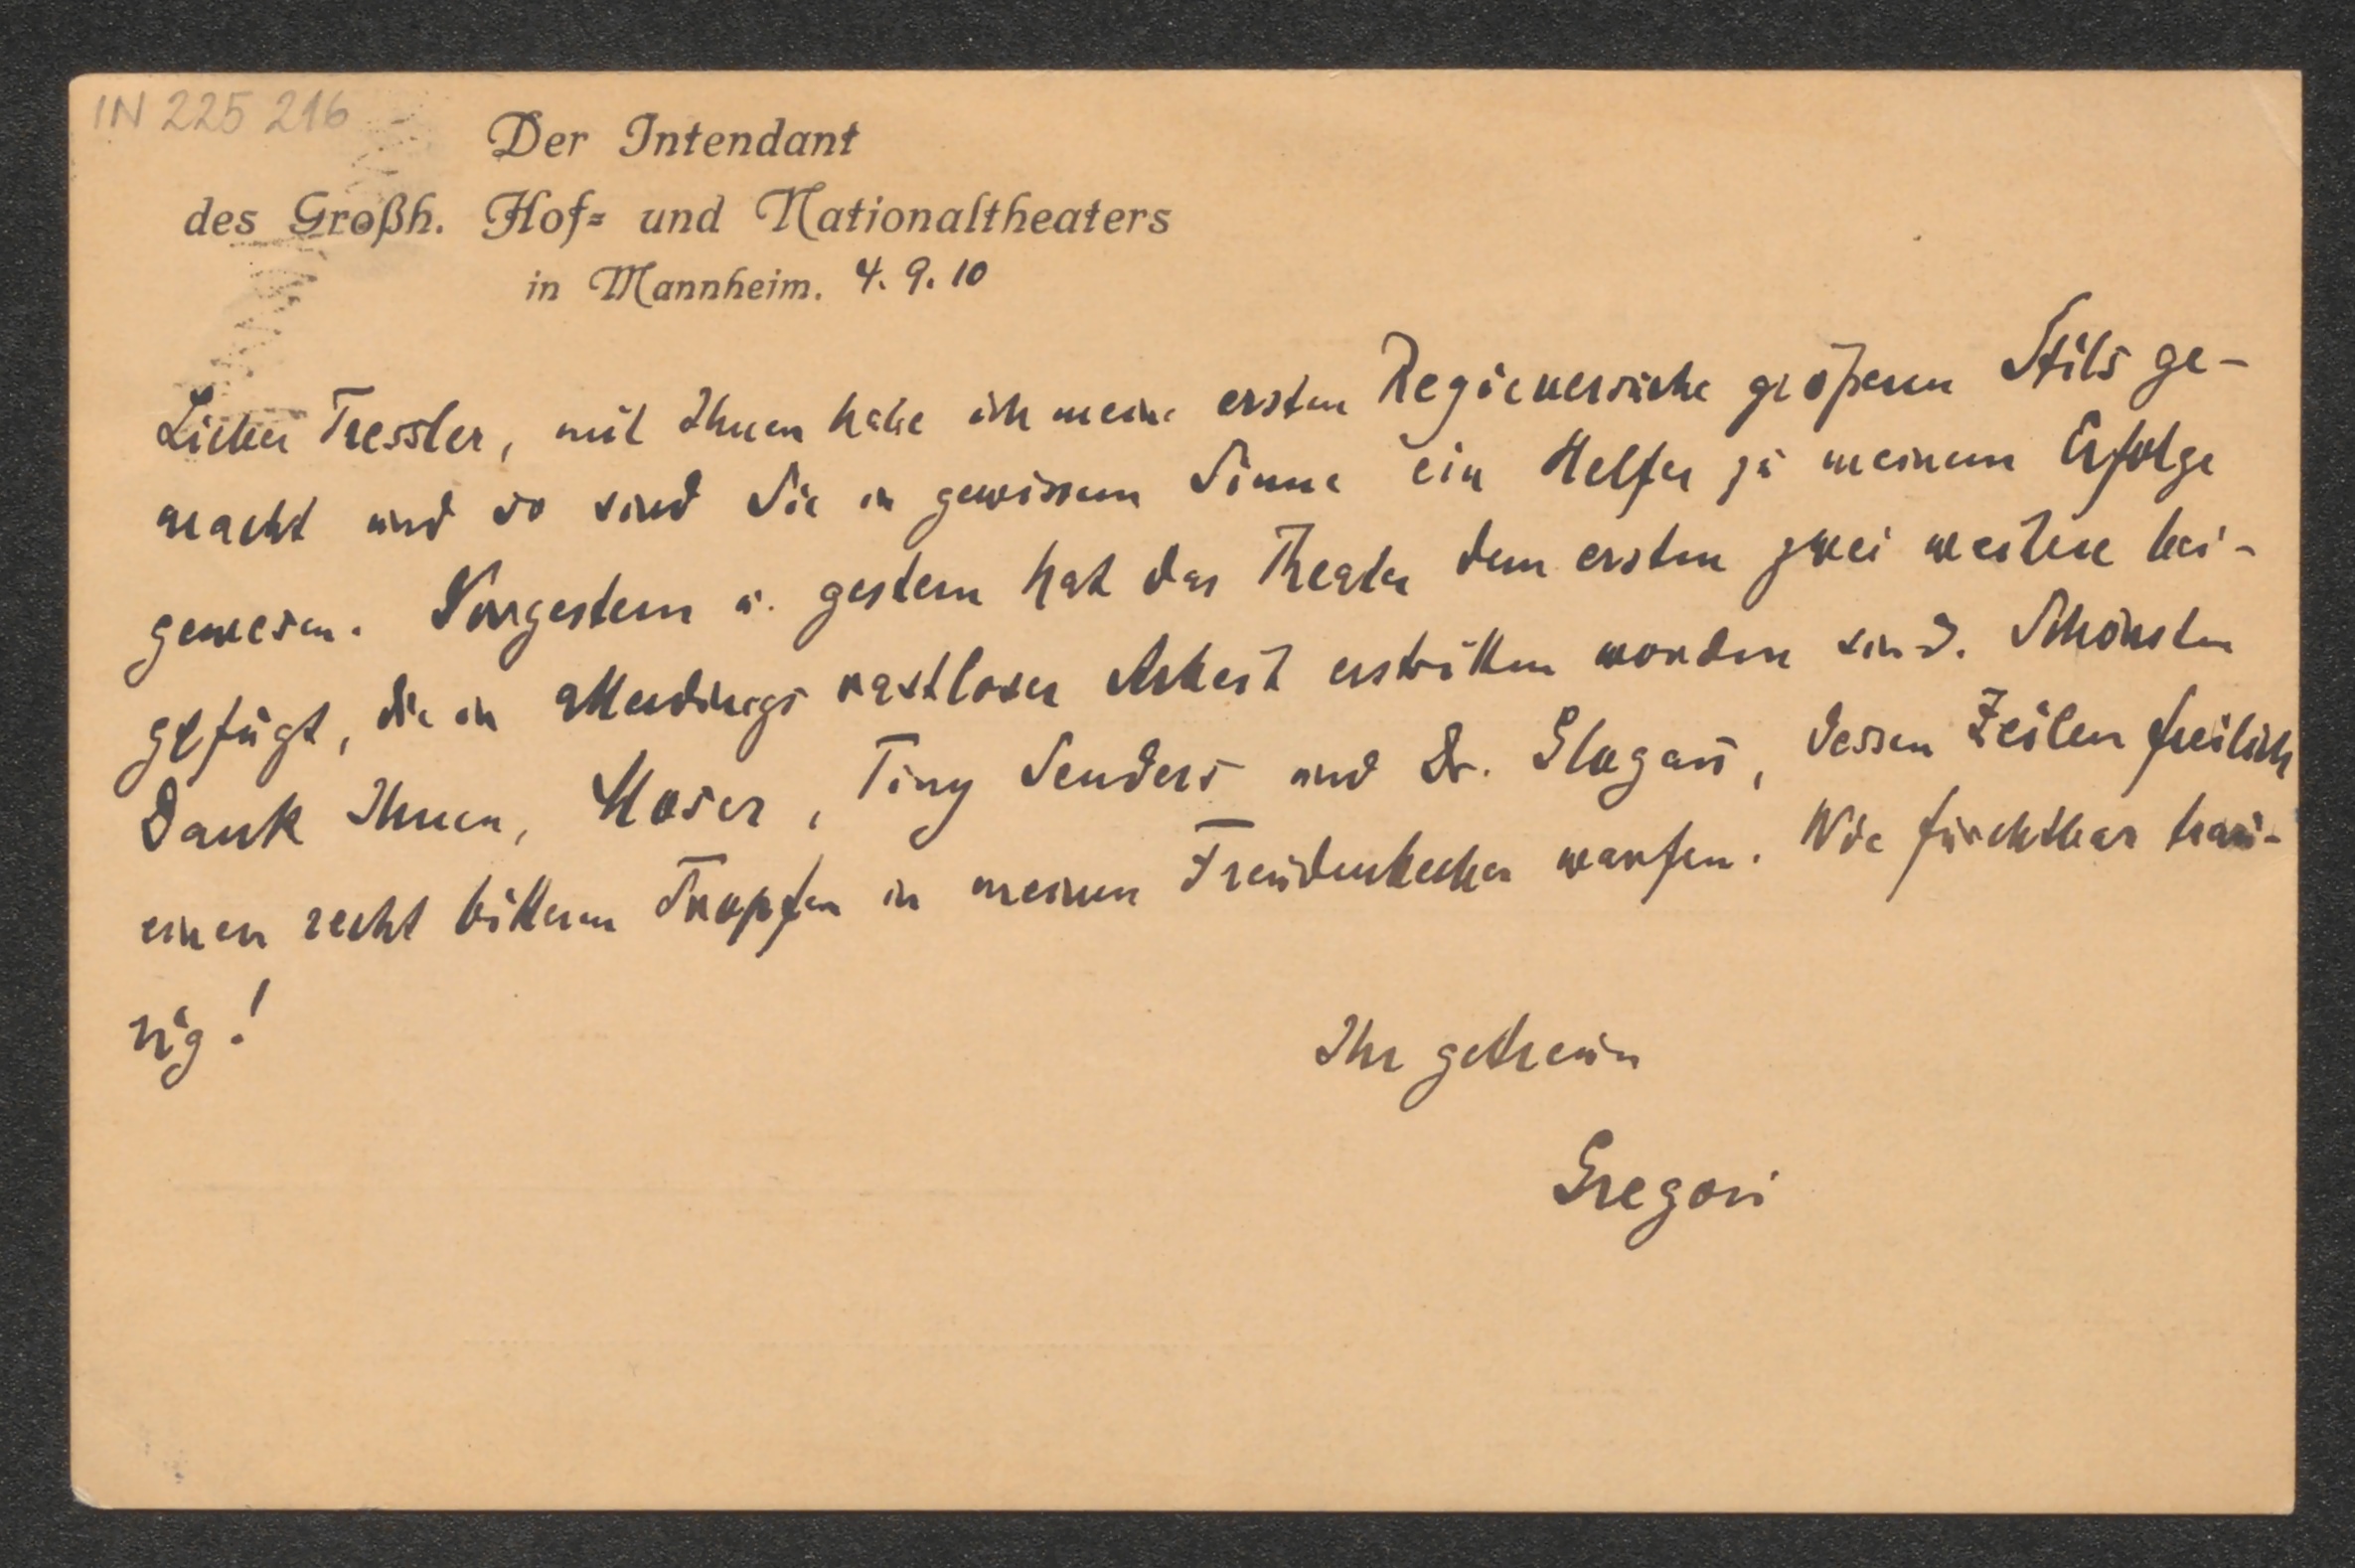 IN 225 216
Der Intendant
des Großh. Hof= und Nationaltheaters
in Mannheim. 4. 9. 10
Lieber Tressler, mit Ihnen habe ich meine ersten Regieversuche größeren Stils ge-
macht und so sind Sie in gewissem Sinne ein Helfer zu meinem Erfolge
gewesen. Vorgestern u. gestern hat das Theater dem ersten zwei weitere bei-
gefügt, die in allerdings rastloser Arbeit erstritten worden sind. Schönsten
Dank Ihnen, Moser, Tiny Senders und Dr. Glogau, dessen Zeilen freilich
einen recht bitteren Tropfen in meinen Freudenbecher warfen. Wie furchtbar trau-
rig!
Ihr getreuer
Gregori